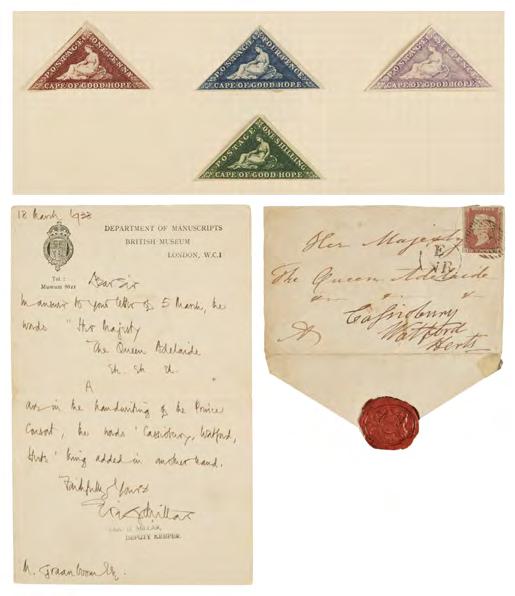 POSTAGE ONE PENNY
CAPE OF GOOD HOPE
POSTAGE FOUR PENCE
CAPE OF GOOD HOPE
POSTAGE SIX PENCE
CAPE OF GOOD HOPE
POSTAGE ONE SHILLING
CAPE OF GOOD HOPE
18 March 1938
DEPARTMENT OF MANUSCRIPTS
BRITISH MUSEUM
LONDON, W.C.1
Tel :
Museum
Dear Sir
In answer to your letter of 5 March, the
words "Her Majesty
The Queen Adelaide
A "
are in the handwriting of the Prince
Consort, the words 'Cassiobury, Watford,
Herts' being added in another hand.
Faithfully Yours
Eric G Millar
ERIC G. MILLAR,
DEPUTY KEEPER.
Esq.
Her Majesty
The Queen Adelaide
Cassiobury
Watford
Herts
A